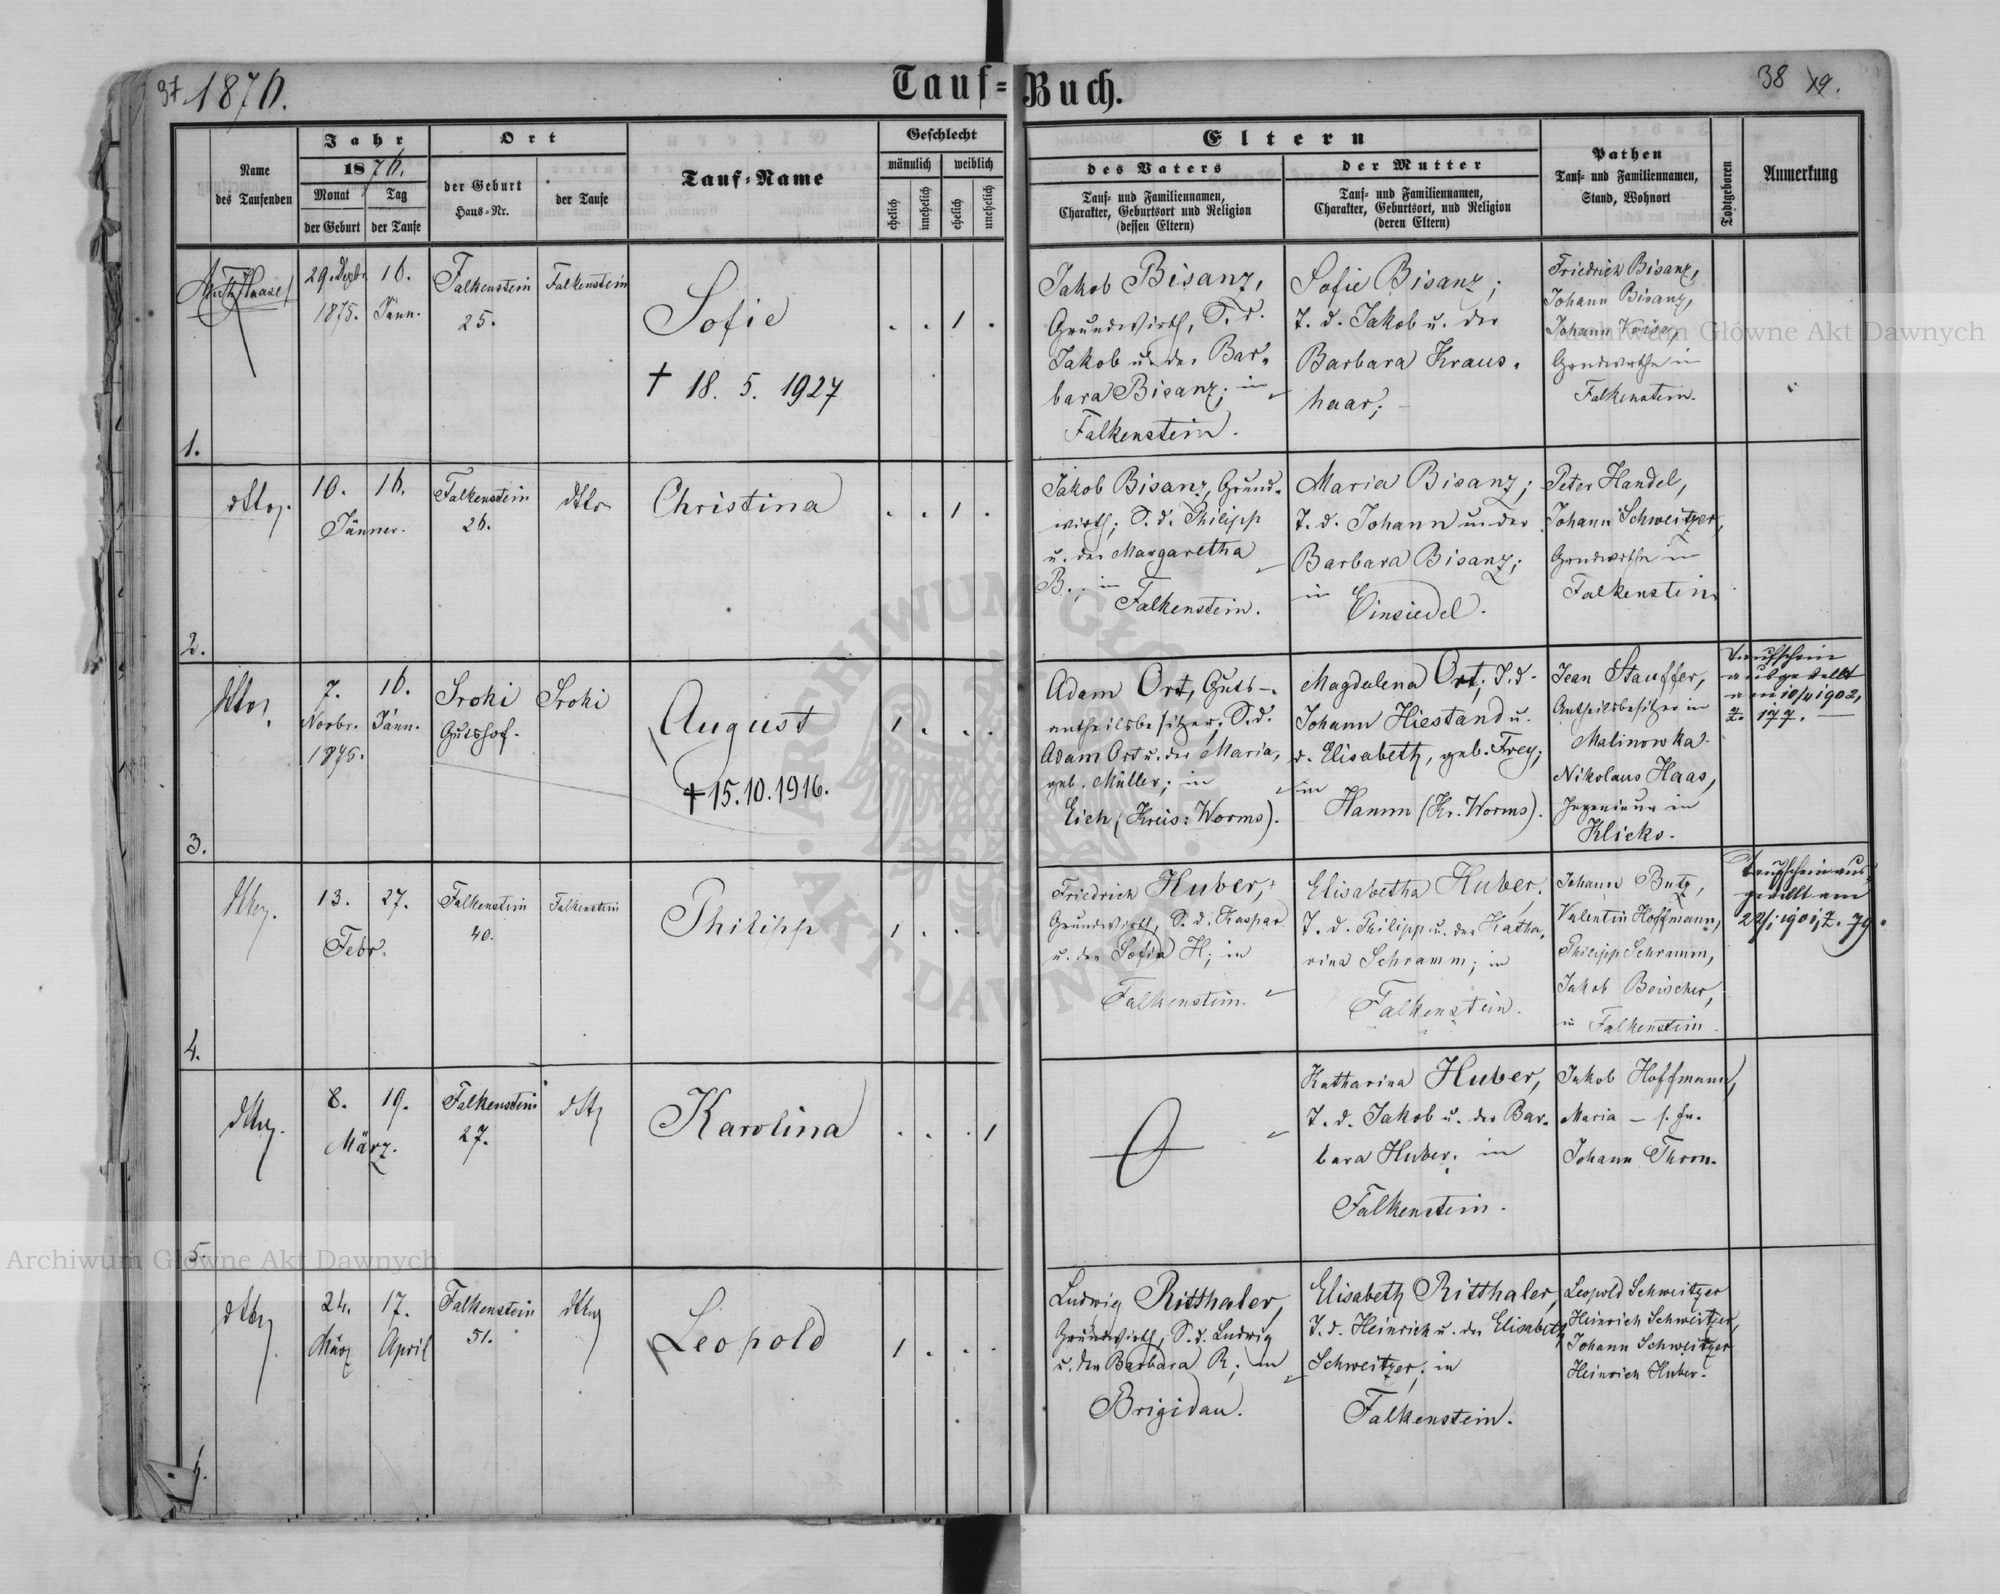 37. 1876.
Tauf=Buch.
38 19.
Name des Taufenden
Jahr
1876.
Monat der Geburt
Tag der Taufe
Ort
der Geburt Haus=Nr.
der Taufe
Tauf=Name
Geschlecht
männlich
weiblich
ehelich
unehelich
ehelich
unehelich
Eltern
des Vaters
Tauf= und Familiennamen,
Charakter, Geburtsort und Religion
(dessen Eltern)
der Mutter
Tauf= und Familiennamen,
Charakter, Geburtsort, und Religion
(deren Eltern)
Pathen
Tauf= und Familiennamen,
Stand, Wohnort
Todtgeboren
Anmerkung
1.
29. Dezbr.
1875.
16.
Jänn.
Falkenstein
25.
Falkenstein
Sofie
† 18. 5. 1927
. . 1 .
Jakob Bisanz,
Grundwirth, S. d.
Jakob u. der Bar=
bara Bisanz; in
Falkenstein.
Sofie Bisanz;
T. d. Jakob u. der
Barbara Kraus=
haar;
Friedrich Bisanz,
Johann Bisanz,
Johann
Grndwirthe in
Falkenstein.
2.
dtto.
10.
16.
Jänner.
Falkenstein
26.
dtto
Christina
. . 1 .
Jakob Bisanz, Grund=
wirth; S. d. Philipp
u. der Margaretha
B.; in
Falkenstein.
Maria Bisanz;
T. d. Johann u. der
Barbara Bisanz;
in
Einsiedel.
Peter Handel,
Johann Schweitzer,
Grndwirthe in
Falkenstein
3.
dtto.
7.
Novbr.
1875.
16.
Jänn.
Sroki
Gutshof.
Sroki
August
† 15. 10. 1916.
1 . . .
Adam Ort, Guts=
antheilsbesitzer, S. d.
Adam Ort u. der Maria,
geb. Müller; in
Eich, (Kreis: Worms).
Magdalena Ort; T. d.
Johann Hiestand u.
d. Elisabeth, geb. Frey;
in
Hamm (Kr. Worms).
Jean Stauffer,
Antheilsbesitzer in
Malinowka.
Nikolaus Haas,
Ingenieur in
Klicko.
Taufschein
ausgestellt
am 10/4 1902,
Z. 177.
4.
dtto.
13.
27.
Febr.
Falkenstein
40.
Falkenstein
Philipp
1 . . .
Friedrich Huber,
Grundwirth, S. d. Kaspar
u. der Sofia H; in
Falkenstein.
Elisabetha Huber,
T. d. Philipp u. der Katha=
rina Schramm; in
Falkenstein.
Johann Butz,
Valentin Hoffmann,
Philipp Schramm,
Jakob
in Falkenstein.
Taufschein aus=
gestellt am
1901, Z. 79.
5.
dtto.
8.
19.
März.
Falkenstein
27.
dtto
Karolina
. . . 1
Katharina Huber,
T. d. Jakob u. der Bar=
bara Huber; in
Falkenstein.
Jakob Hoffmann,
Maria – s. Fr.
Johann Thron.
6.
dtto.
24.
März
17.
April
Falkenstein
51.
dtto
Leopold
1 . . .
Ludwig Ritthaler,
Grundwirth, S. d. Ludwig
u. der Barbara R; in
Brigidau.
Elisabeth Ritthaler,
T. d. Heinrich u. der Elisabeth
Schweitzer; in
Falkenstein.
Leopold Schweitzer
Heinrich Schweitzer,
Johann Schweitzer
Heinrich Huber.
Archiwum Główne Akt Dawnych
Archiwum Główne Akt Dawnych
ARCHIWUM GŁÓWNE AKT DAWNYCH